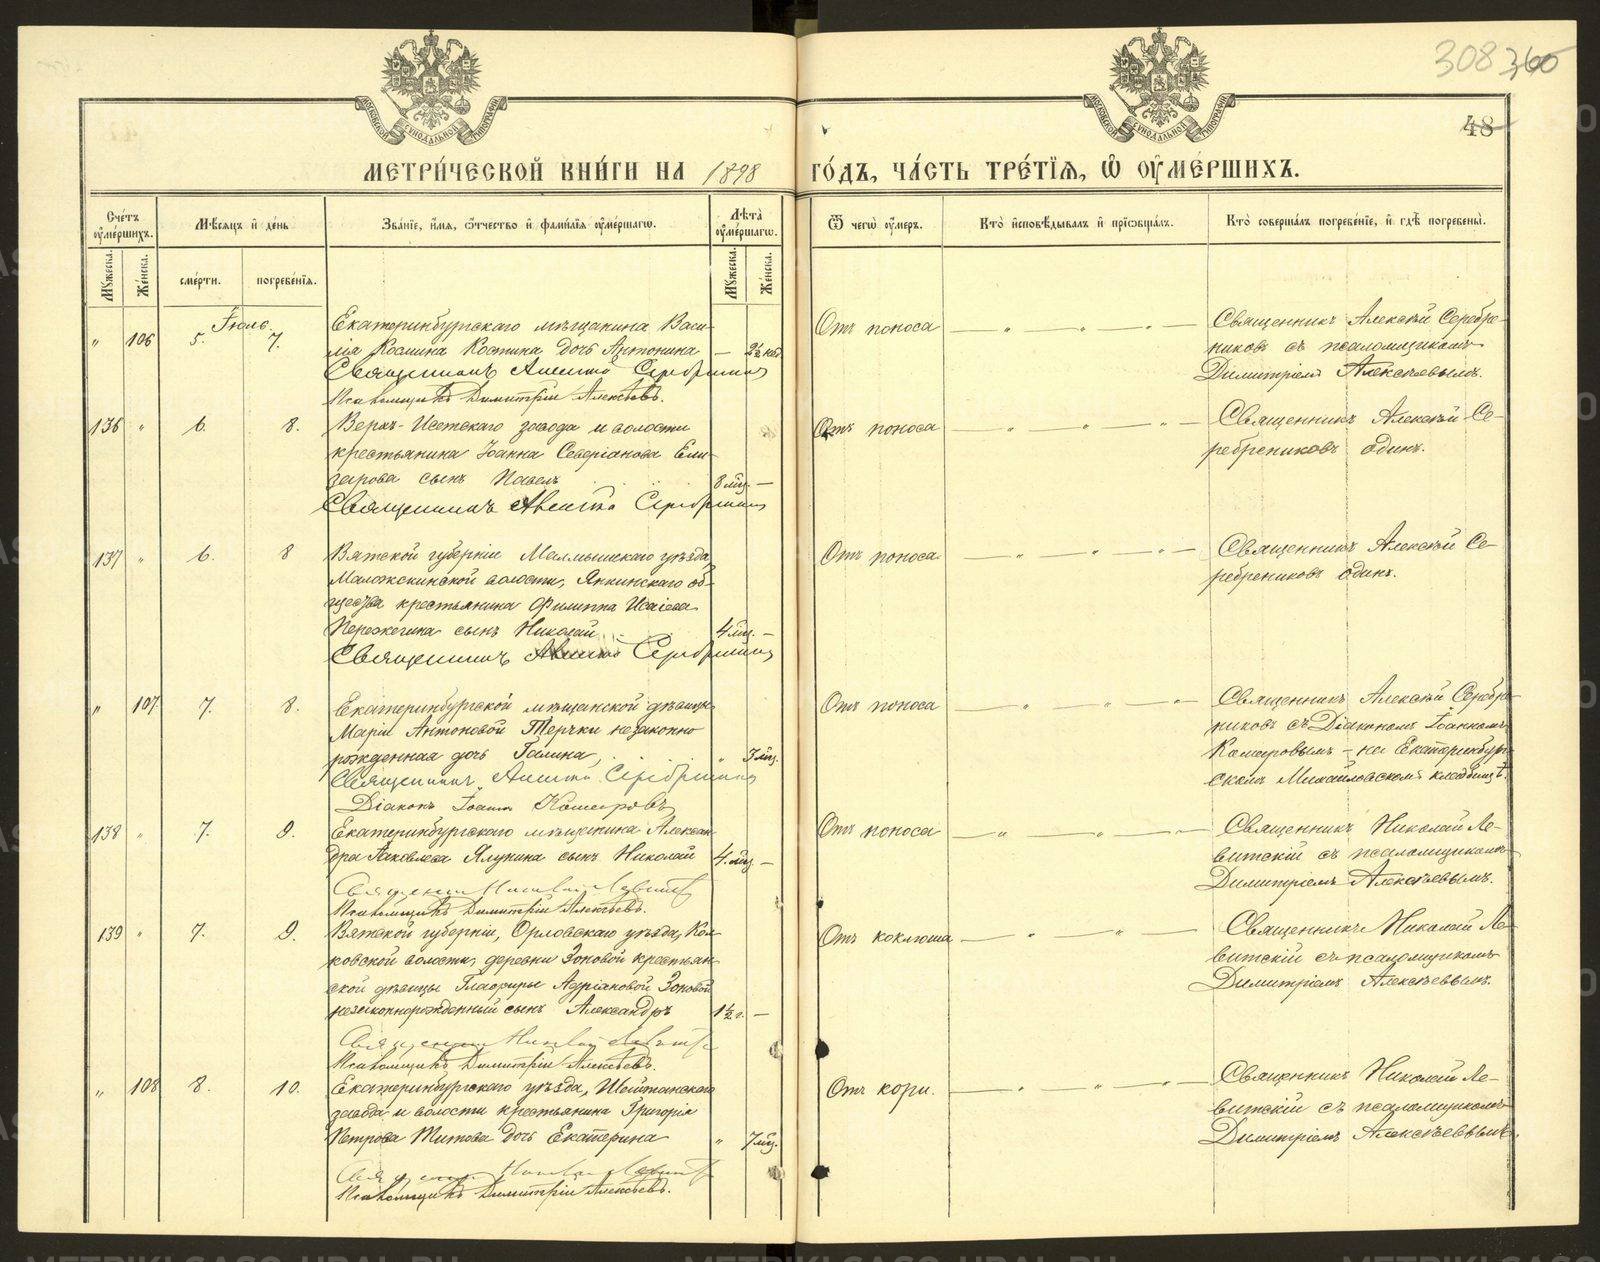 308 360
48
МОСКОВСКОЙ СѴНОДАЛЬНОЙ ТИПОГРАФІИ
МОСКОВСКОЙ СѴНОДАЛЬНОЙ ТИПОГРАФІИ
МЕТРИ́ЧЕСКОЙ КНИ́ГИ НА 1898 ГО́ДЪ, ЧА́СТЬ ТРЕ́ТІѦ, Ѡ҆ ОУ҆МЕ́РШИХЪ.
Сче́тъ оу҆ме́ршихъ.
Мѣ́сяцъ и҆ де́нь
Зва́ніе, и҆́мя, ѻ҆́тчество и҆ фами́лія оу҆ме́ршагѡ.
Лѣ́та оу҆ме́ршагѡ.
Ѿ чегѡ̀ оу҆́меръ.
Кто̀ и҆сповѣ́дывалъ и҆ прїѡбща́лъ.
Кто̀ соверша́лъ погребе́нїе, и҆ гдѣ̀ погребены̀.
Мꙋ́жеска.
Же́нска.
сме́рти.
погребе́нїѧ.
Мꙋ́жеска.
Же́нска.
Іюль
„ 106 5. 7.
Екатеринбургскаго мѣщанина Васи-
лія Космина Костина дочь Антонина — 2½ нед.
Священникъ Алексій Серебренниковъ
Псаломщикъ Димитрій Алексѣевъ.
Отъ поноса — „ — „ — „ —
Священникъ Алексѣй Серебре-
никовъ съ псаломщикомъ
Димитріемъ Алексѣевымъ.
136 „ 6. 8.
Верхъ-Исетскаго завода и волости
крестьянина Іоанна Северіанова Ели-
зарова сынъ Павелъ 8 мѣс. —
Священникъ Алексій Серебренниковъ
Отъ поноса — „ — „ — „ —
Священникъ Алексѣй Се-
ребрениковъ одинъ.
137 „ 6. 8
Вятской губерніи Малмыжскаго уѣзда,
волости, Янкинскаго об-
щества крестьянина Филиппа Исаіева
Пережегина сынъ Николай 4 мѣс. —
Священникъ Алексій Серебренниковъ
Отъ поноса — „ — „ — „ —
Священникъ Алексѣй Се-
ребрениковъ одинъ.
„ 107 7. 8.
Екатеринбургской мѣщанской дѣвицы
Маріи Антоновой Теручки незаконно
рожденная дочь Галина, „ 3 мѣс.
Священникъ Алексій Серебренниковъ
Діаконъ Іоаннъ Комаровъ
Отъ поноса — „ — „ — „ —
Священникъ Алексѣй Серебре-
никовъ съ Діакономъ Іоанномъ
Комаровымъ – на Екатеринбург-
скомъ Михайловскомъ кладбищѣ.
138 „ 7. 9.
Екатеринбургскаго мѣщанина Алексан-
дра Яковлева Ялунина сынъ Николай 4. мѣс. —
Священникъ Николай Левитскій
Псаломщикъ Димитрій Алексѣевъ.
Отъ поноса — „ — „ — „ —
Священникъ Николай Ле-
витскій съ псаломщикомъ
Димитріемъ Алексѣевымъ.
139 „ 7. 9.
Вятской губерніи, Орловскаго уѣзда, Кол-
ковской волости, деревни Зоновой крестьян-
ской дѣвицы Глафиры Адріановой Зоновой
незаконнорожденный сынъ Александръ 1½ г. —
Священникъ Николай Левитскій
Псаломщикъ Димитрій Алексѣевъ.
Отъ коклюша — „ — „ —
Священникъ Николай Ле-
витскій съ псаломщикомъ
Димитріемъ Алексѣевымъ.
„ 108 8. 10.
Екатеринбургскаго уѣзда, Шайтанскаго
завода и волости крестьянина Григорія
Петрова Титова дочь Екатерина „ 7 мѣс.
Священникъ Николай Левитскій
Псаломщикъ Димитрій Алексѣевъ.
Отъ кори. — „ — „ — „ —
Священникъ Николай Ле-
витскій съ псаломщикомъ
Димитріемъ Алексѣевымъ.